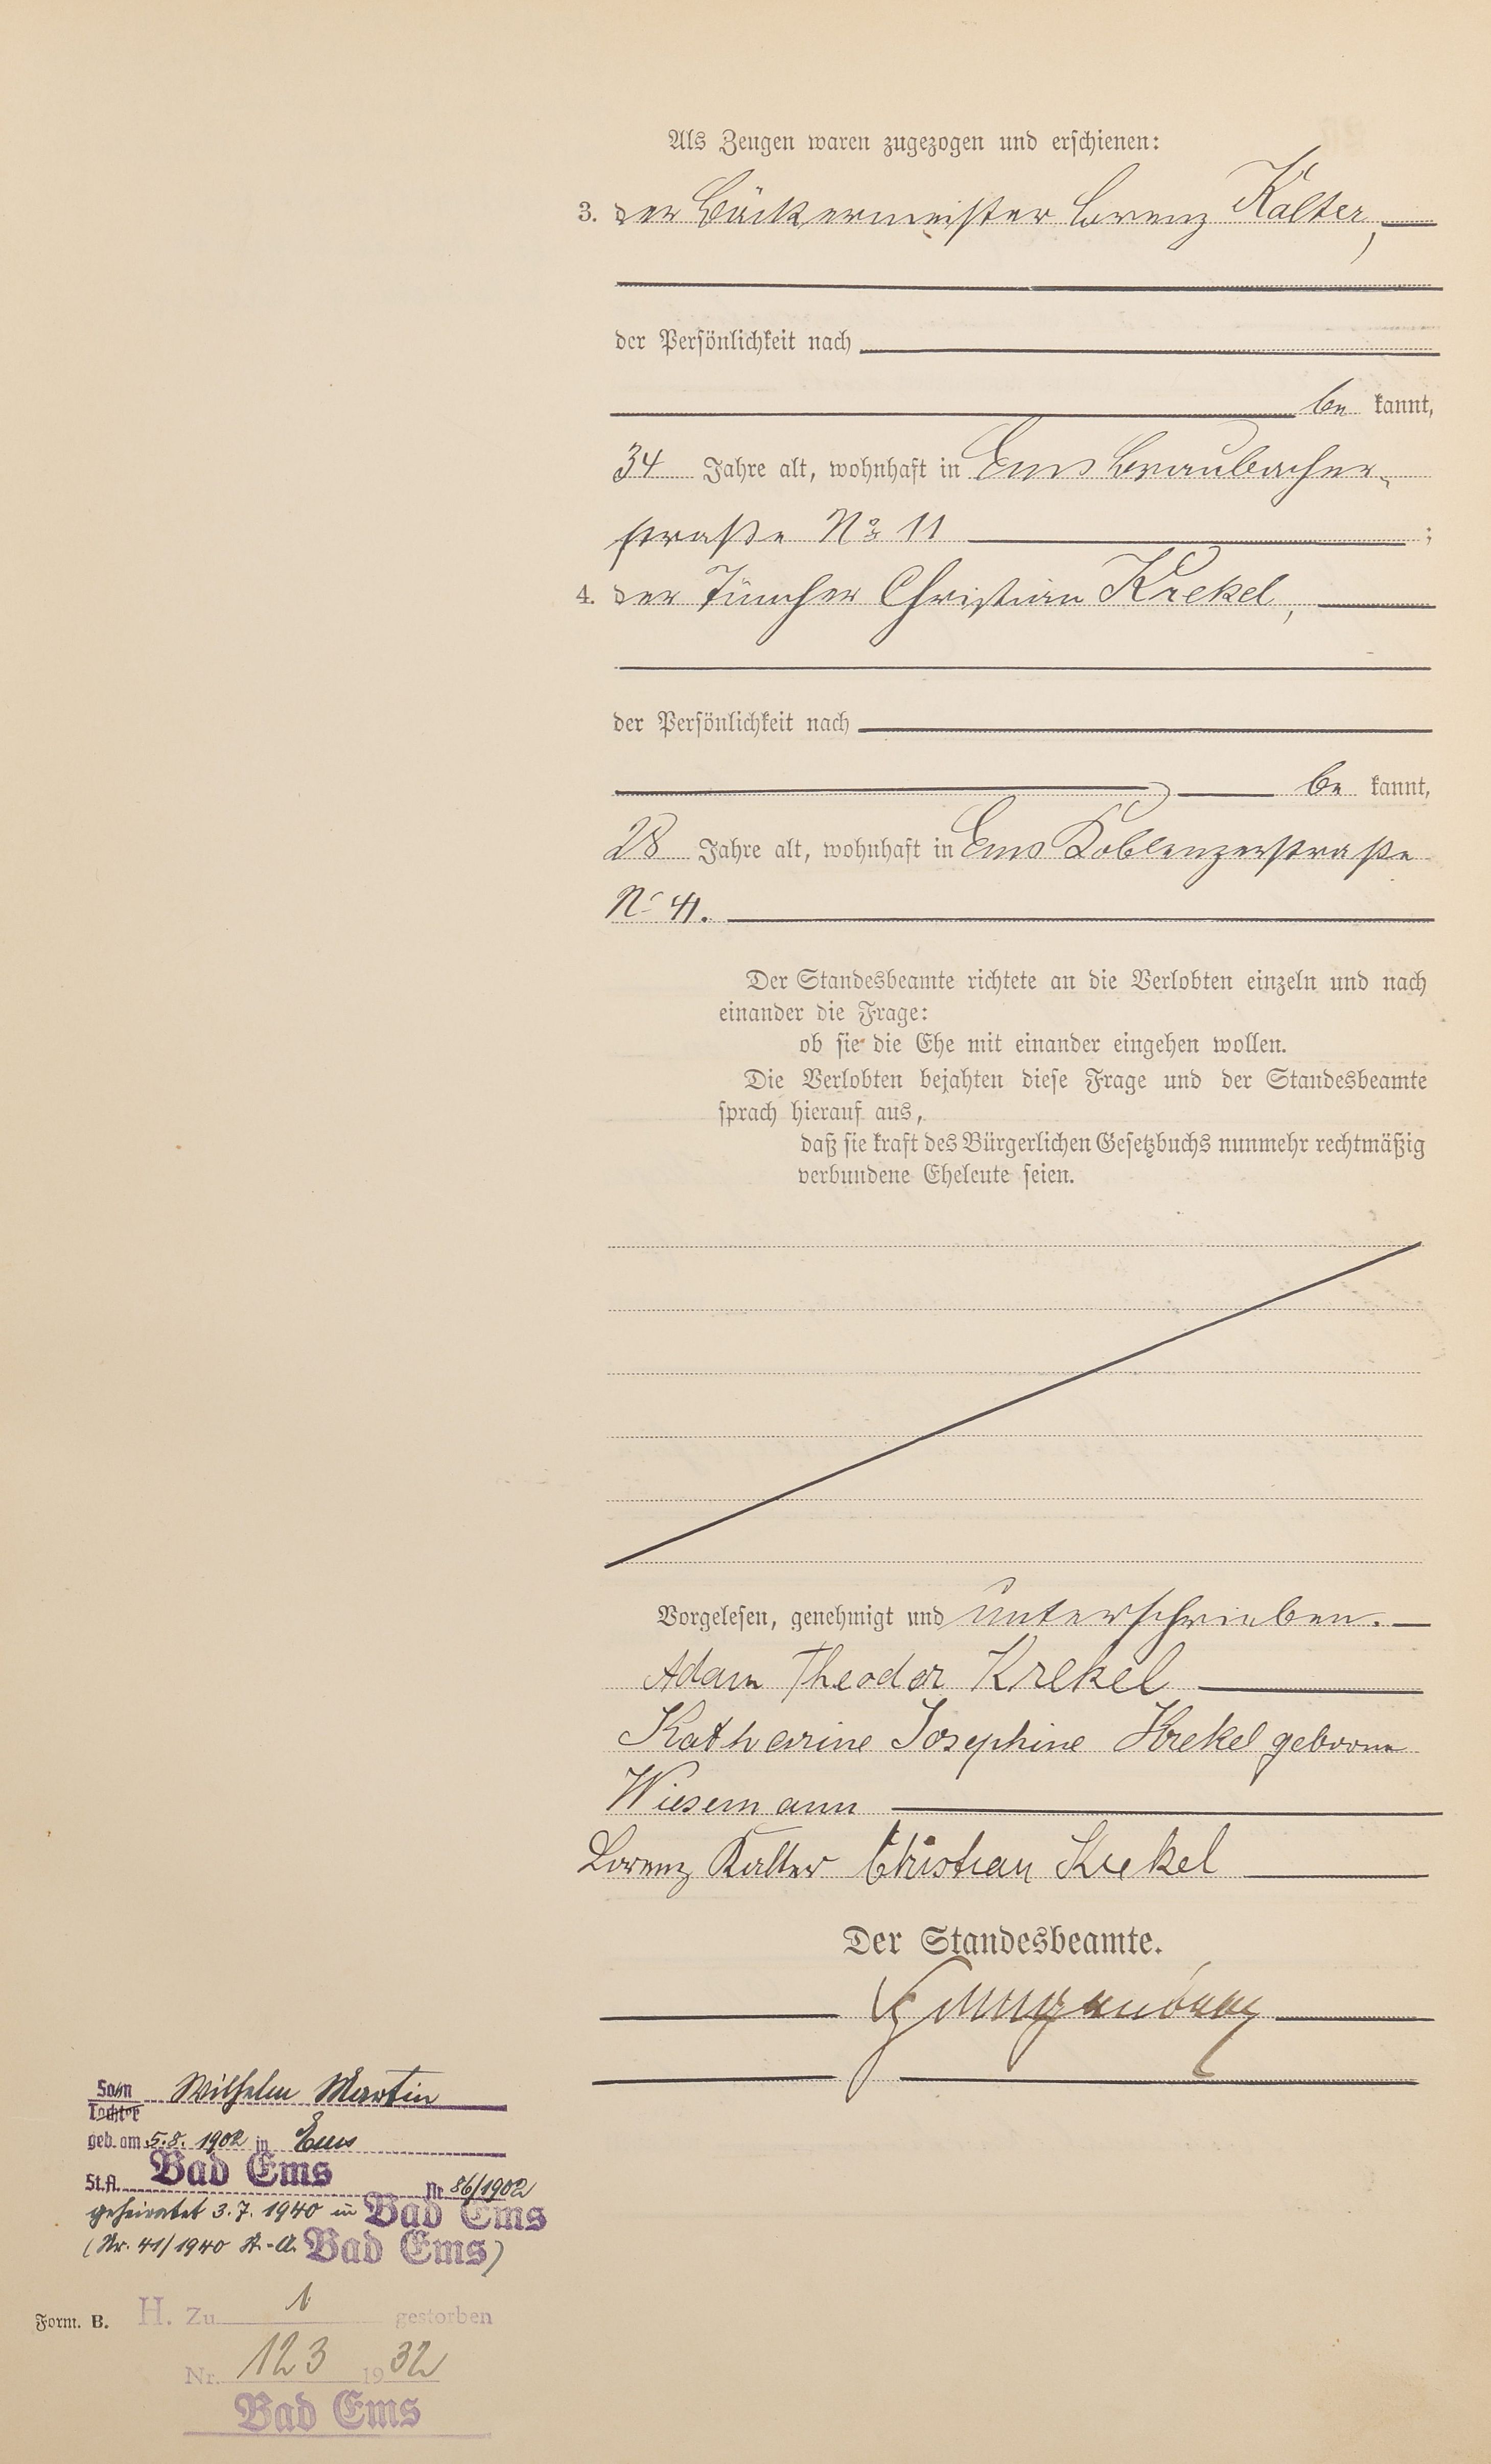 Als Zeugen waren zugezogen und erschienen:
3. der Bäckermeister Lorenz Kalter,
der Persönlichkeit nach
be kannt,
34 Jahre alt, wohnhaft in Ems Braubacher-
straße No 11 ;
4. der Tüncher Christian Krekel,
der Persönlichkeit nach
be kannt,
28 Jahre alt, wohnhaft in Ems Koblenzerstraße
No 41.
Der Standesbeamte richtete an die Verlobten einzeln und nach
einander die Frage:
ob sie die Ehe mit einander eingehen wollen.
Die Verlobten bejahten diese Frage und der Standesbeamte
sprach hierauf aus,
daß sie kraft des Bürgerlichen Gesetzbuchs nunmehr rechtmäßig
verbundene Eheleute seien.
Vorgelesen, genehmigt und unterschrieben.
Adam Theodor Krekel
Katharine Josephine Krekel geborne
Wiesemann
Lorenz Kalter Christian Krekel
Der Standesbeamte.
Sohn Wilhelm Martin
Tochter
geb. am 5.8. 1902 in Ems
St.A. Bad Ems Nr 86/1902
geheiratet 3.7. 1940 in Bad Ems
(Nr. 41/1940 St.-A. Bad Ems)
Form. B. H. Zu 1 gestorben
Nr. 123 1932
Bad Ems